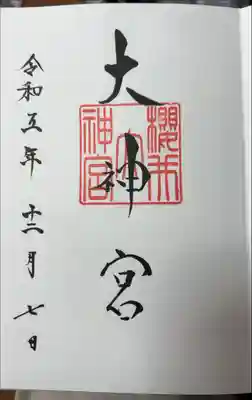 大神宮
櫻
神宮
令和五年 十二月 七日